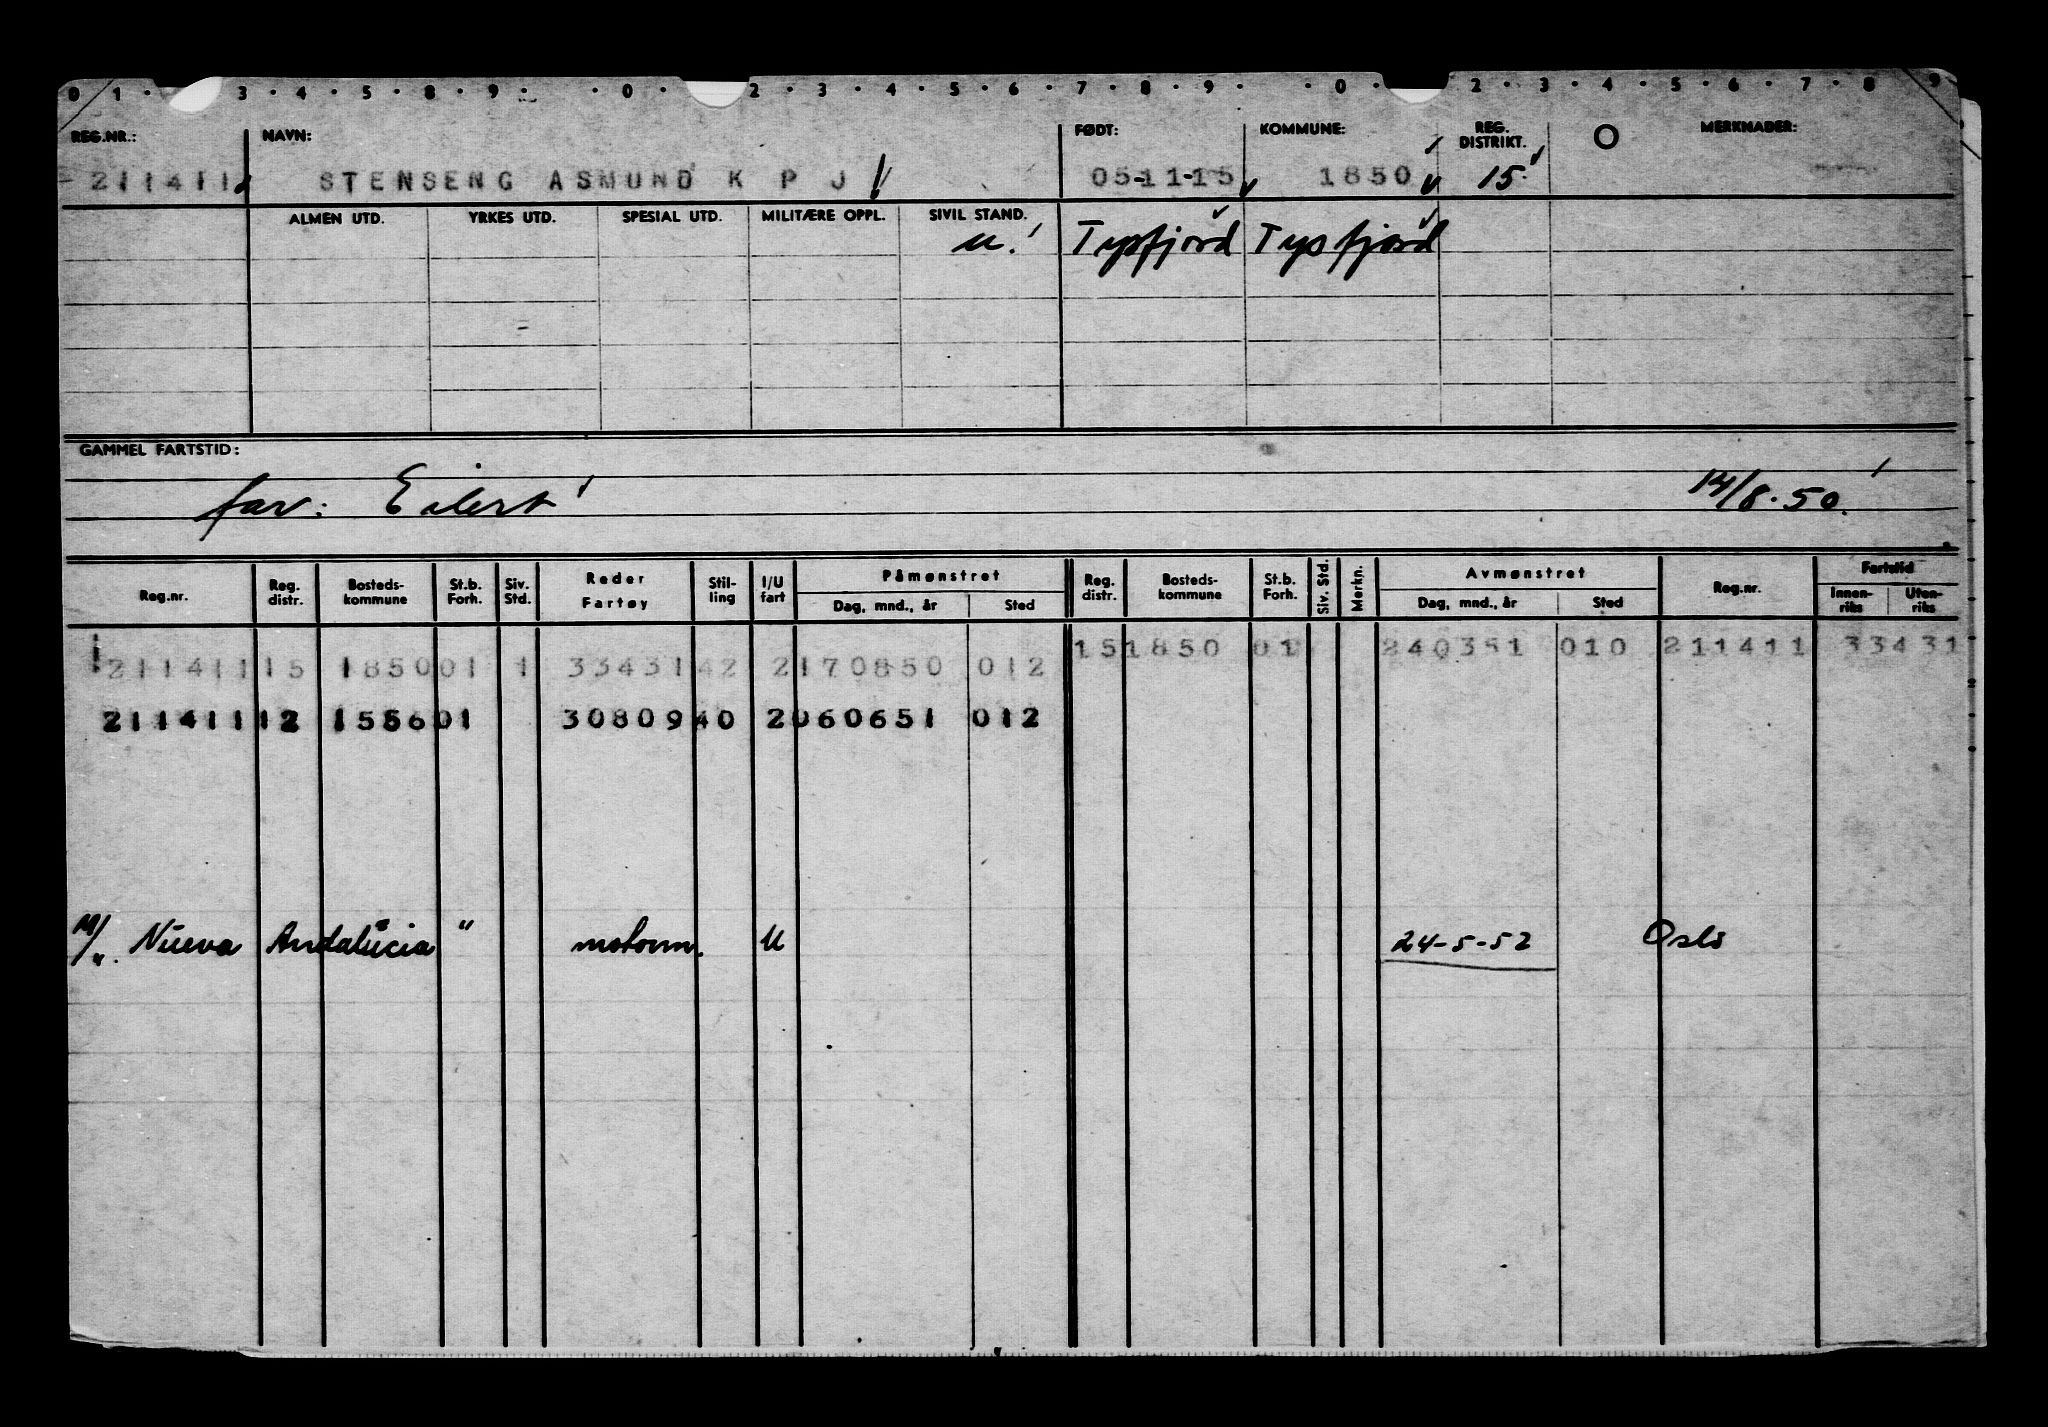 0 1 · 3 · 4 · 5 · 8 · 9 · · 0 · 2 · 3 · 4 · 5 · 6 · 7 · 8 · 9 · · 0 · 2 · 3 · 4 · 5 · 6 · 7 · 8 9
REG.NR.: NAVN: FØDT: KOMMUNE: REG. DISTRIKT. O MERKNADER:
211411 STENSENG ASMUND K P J 05-11-15 1850 15
ALMEN UTD. YRKES UTD. SPESIAL UTD. MILITÆRE OPPL. SIVIL STAND.
u. Tysfjord Tysfjord
GAMMEL FARTSTID:
far: Eilert 14/8.50.
Reg.nr. Reg. distr. Bosteds-kommune St.b. Forh. Siv. Std. Reder Fartøy Stil-ling I/U fart Påmønstret Dag, mnd., år Sted Reg. distr. Bosteds-kommune St.b. Forh. Siv. Std. Merkn. Avmønstret Dag, mnd., år Sted Reg.nr. Fartstid Innen-riks Uten-riks
211411 15 1850 01 1 33431 42 2 170850 012 15 1850 01 240351 010 211411 33431
211411 12 1556 01 30809 40 2 060651 012
M/". Nueva Andalucia " motorm. U 24-5-52 Oslo